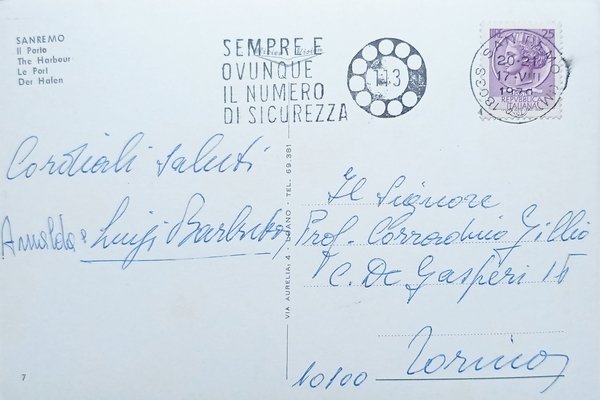 SANREMO
Il Porto
The Harbour
Le Port
Der Hafen
SEMPRE E
OVUNQUE
IL NUMERO
DI SICUREZZA
113
20-21
17·VIII
1970
LIRE 25
REPUBBLICA
ITALIANA
Cordiali Saluti
Arnalda e Luigi
Il Signore
Prof. Corradino Gillio
C. De Gasperi 15
10100 Torino
VIA AURELIA, 4 - TEL. 69.381
7